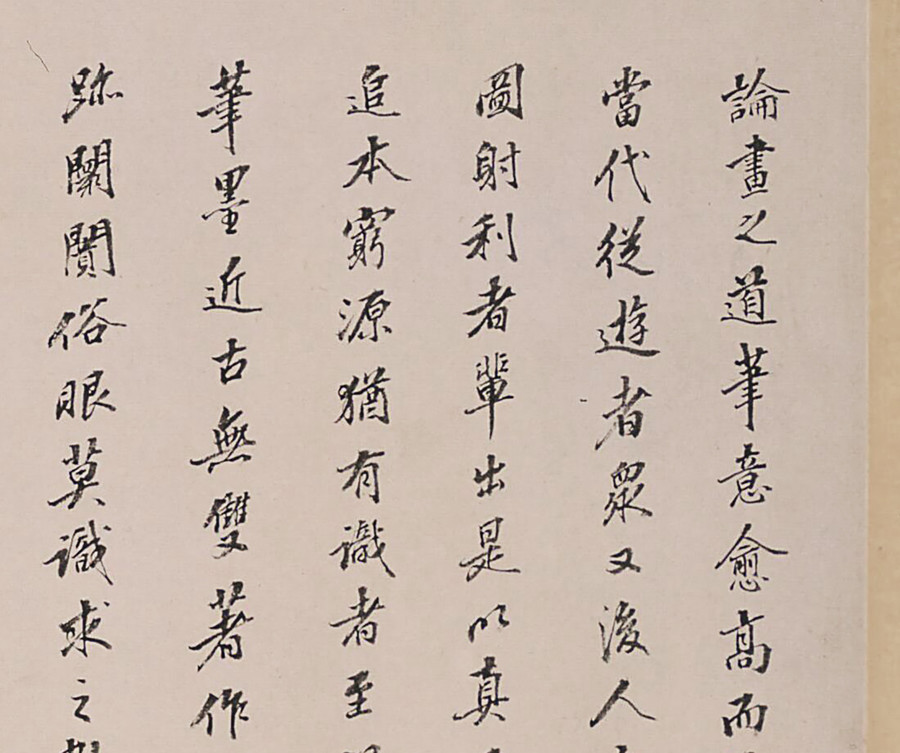 論畫之道筆意愈高而
當代從遊者眾又後人
圖射利者輩出是以真
追本窮源猶有識者至
筆墨近古無雙著作
跡闌闠俗眼莫識求之